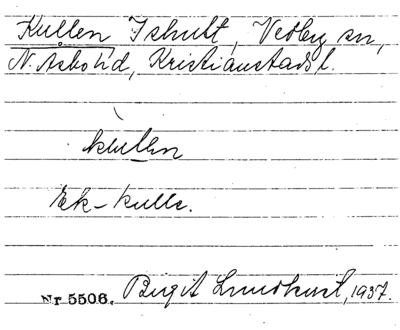 Kullen Ishult, Vedby sn,
N. Åsbo hd, Kristianstads l.
kullen
Ek-kulle.
Nr 5506. Birgit Lundkvist, 1937.